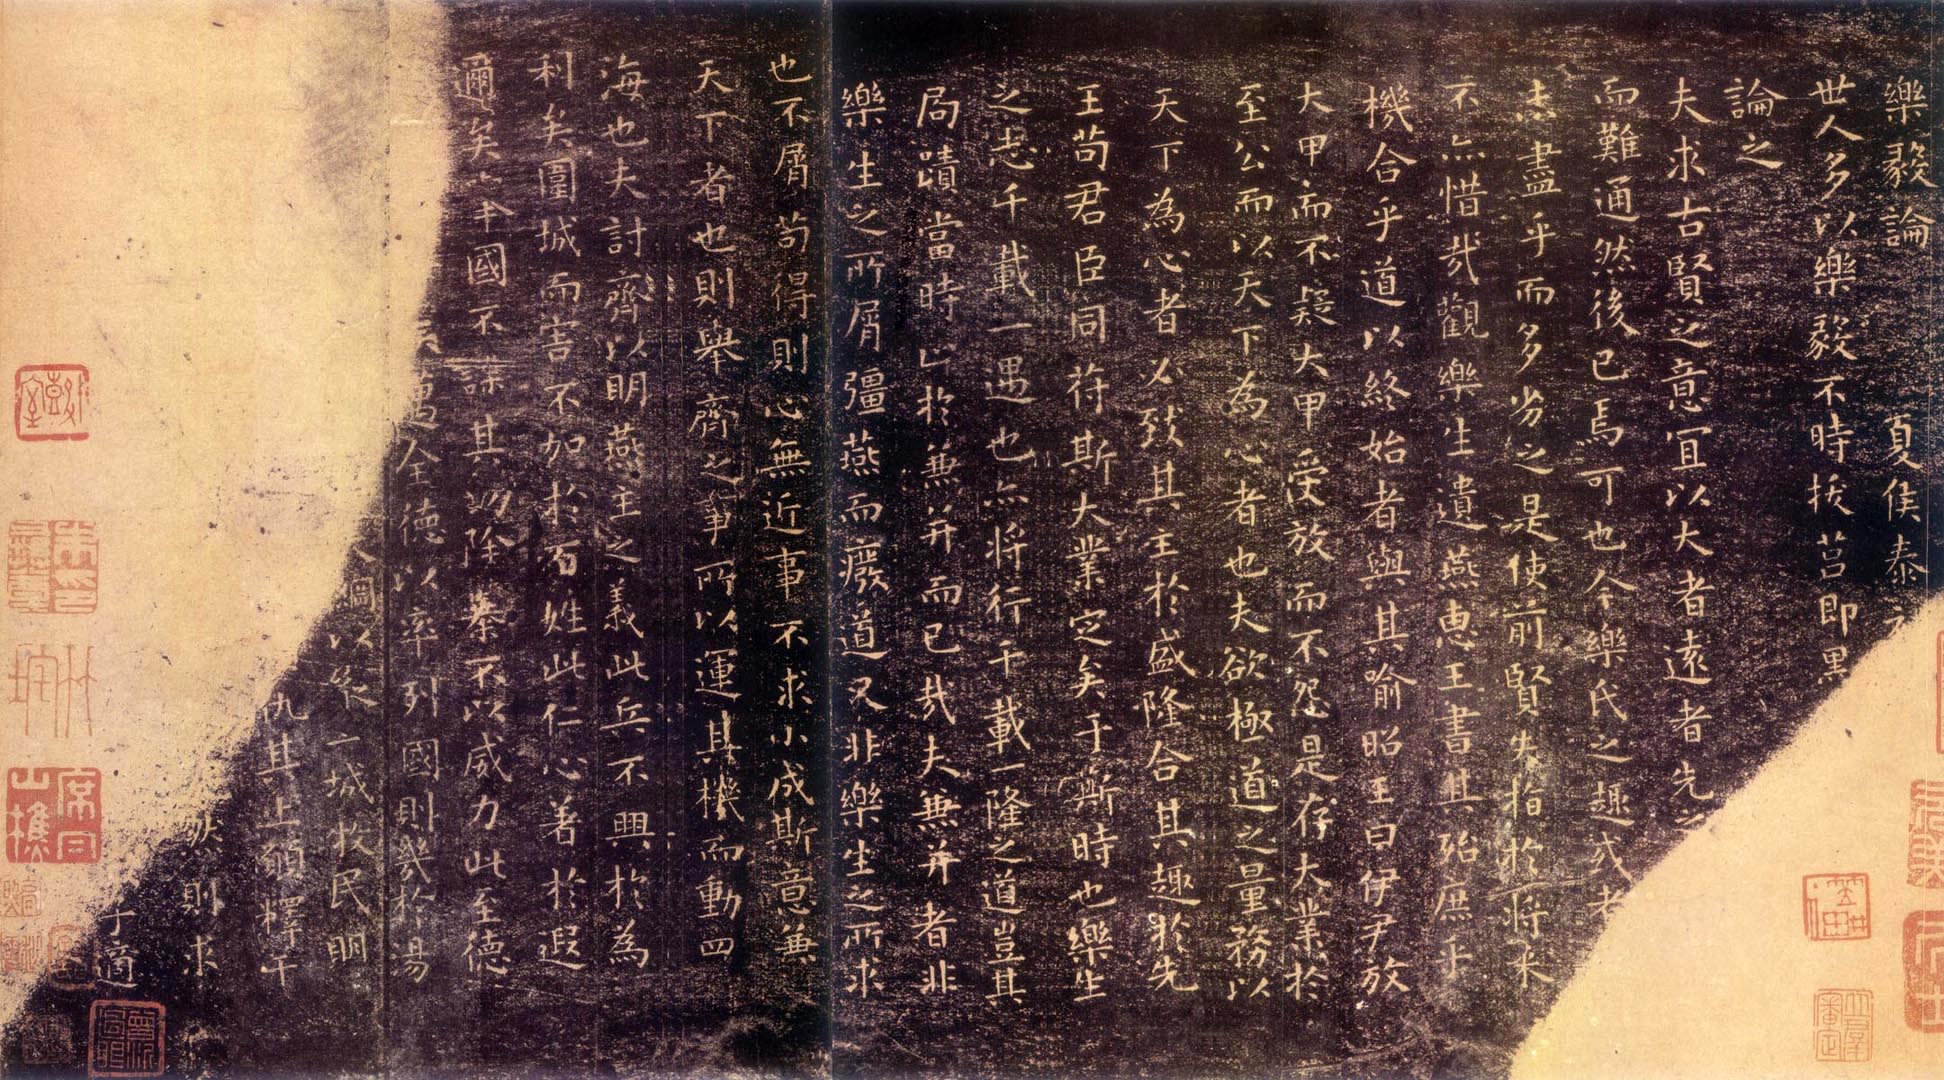 樂毅論 夏侯泰
世人多以樂毅不時拔莒即墨
論之
夫求古賢之意宜以大者遠者先之
而難通然後已焉可也今樂氏之趣或者
其未盡乎而多劣之是使前賢失指於將來
不亦惜哉觀樂生遺燕惠王書其殆庶乎
機合乎道以終始者與其喻昭王曰伊尹放
大甲而不疑大甲受放而不怨是存大業於
至公而以天下為心者也夫欲極道之量務以
天下為心者必致其主於盛隆合其趣於先
王苟君臣同符斯大業定矣于斯時也樂生
之志千載一遇也亦將行千載一隆之道豈其
局蹟當時止於兼并而已哉夫兼并者非
樂生之所屑彊燕而廢道又非樂生之所求
也不屑苟得則心無近事不求小成斯意兼
天下者也則舉齊之事所以運其機而動四
海也夫討齊以明燕主之義此兵不興於為
利矣圍城而害不加於百姓此仁心著於遐
邇矣舉國不謀其功除暴不以威力此至德
全德以率列國則幾於湯
以縱二城收民明
仇其上願釋干
則求
子適